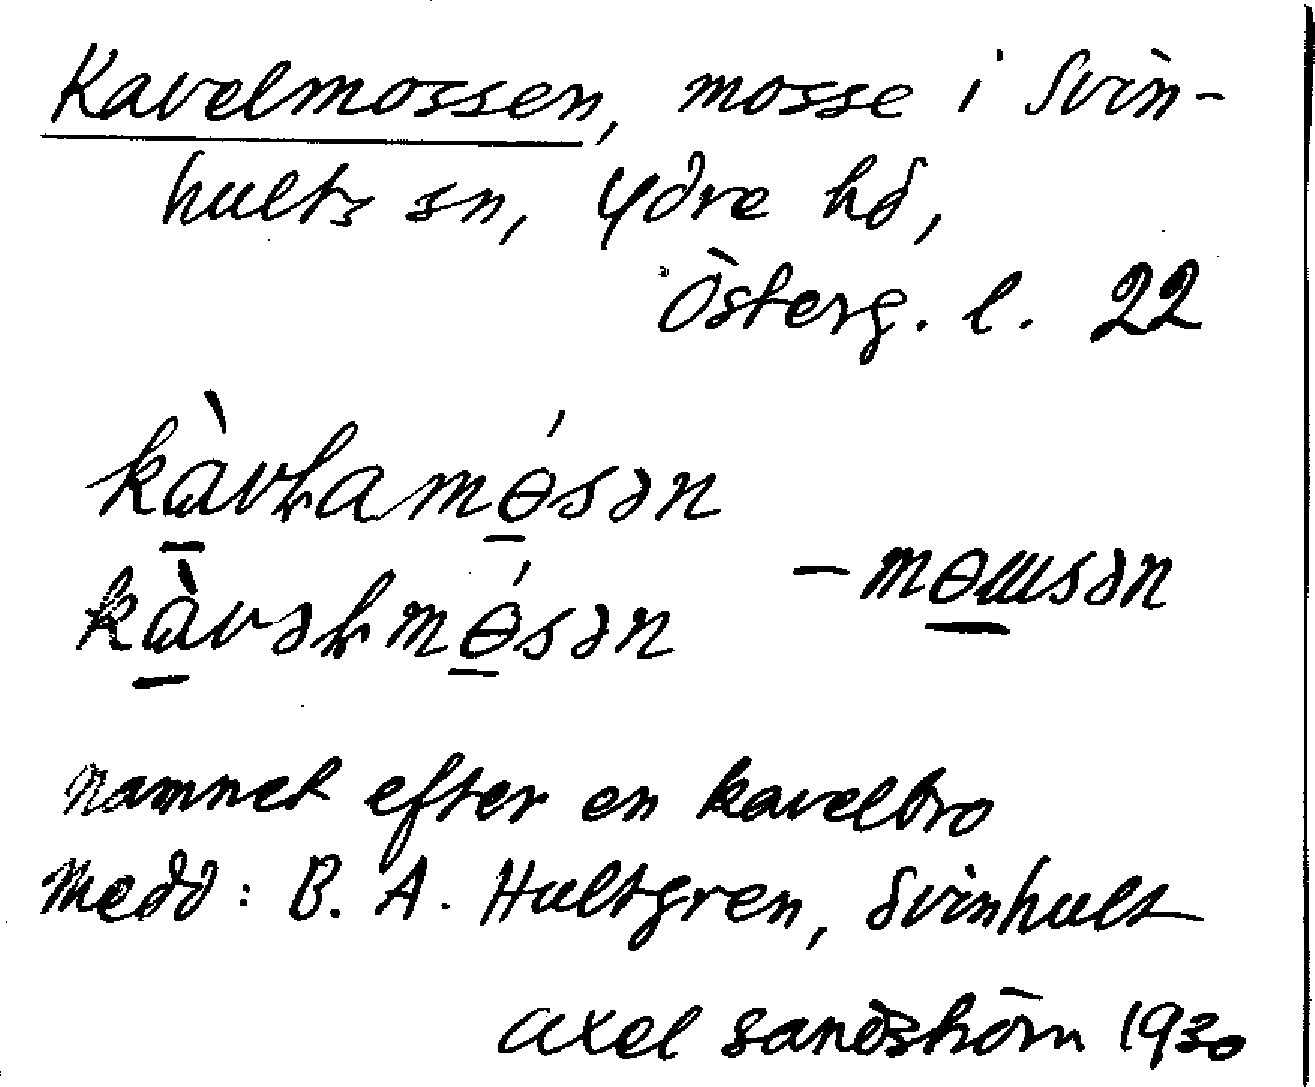 Kavelmossen, mosse i Svin-
hults sn, Ydre hd,
Österg. l. 22
kàvɫamɵ́sən
kàvəɫmɵ́sən -mɵɯsən
namnet efter en kavelbro
Medd: B. A. Hultgren, Svinhult
Axel Sandström 1930